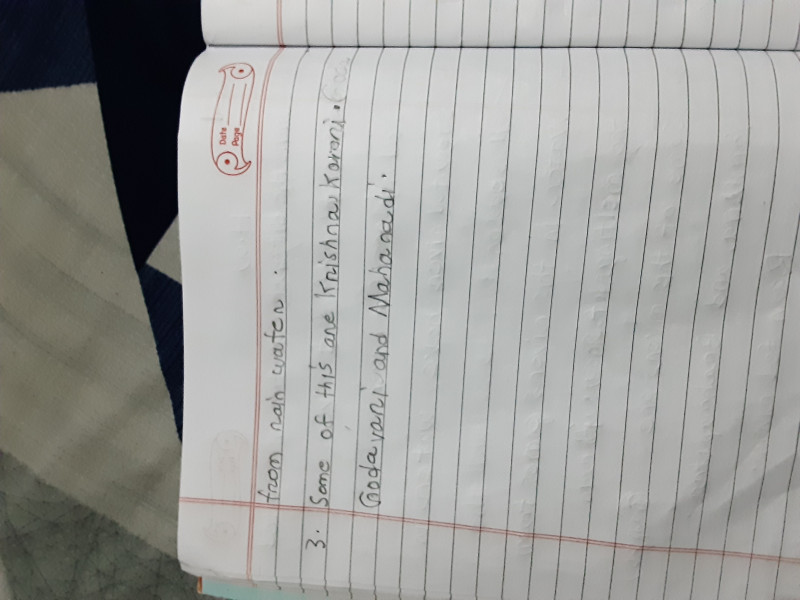 Date
Page
from rain water.
3. Some of this are Krishna Karani.
Godavari and Mahanadi.